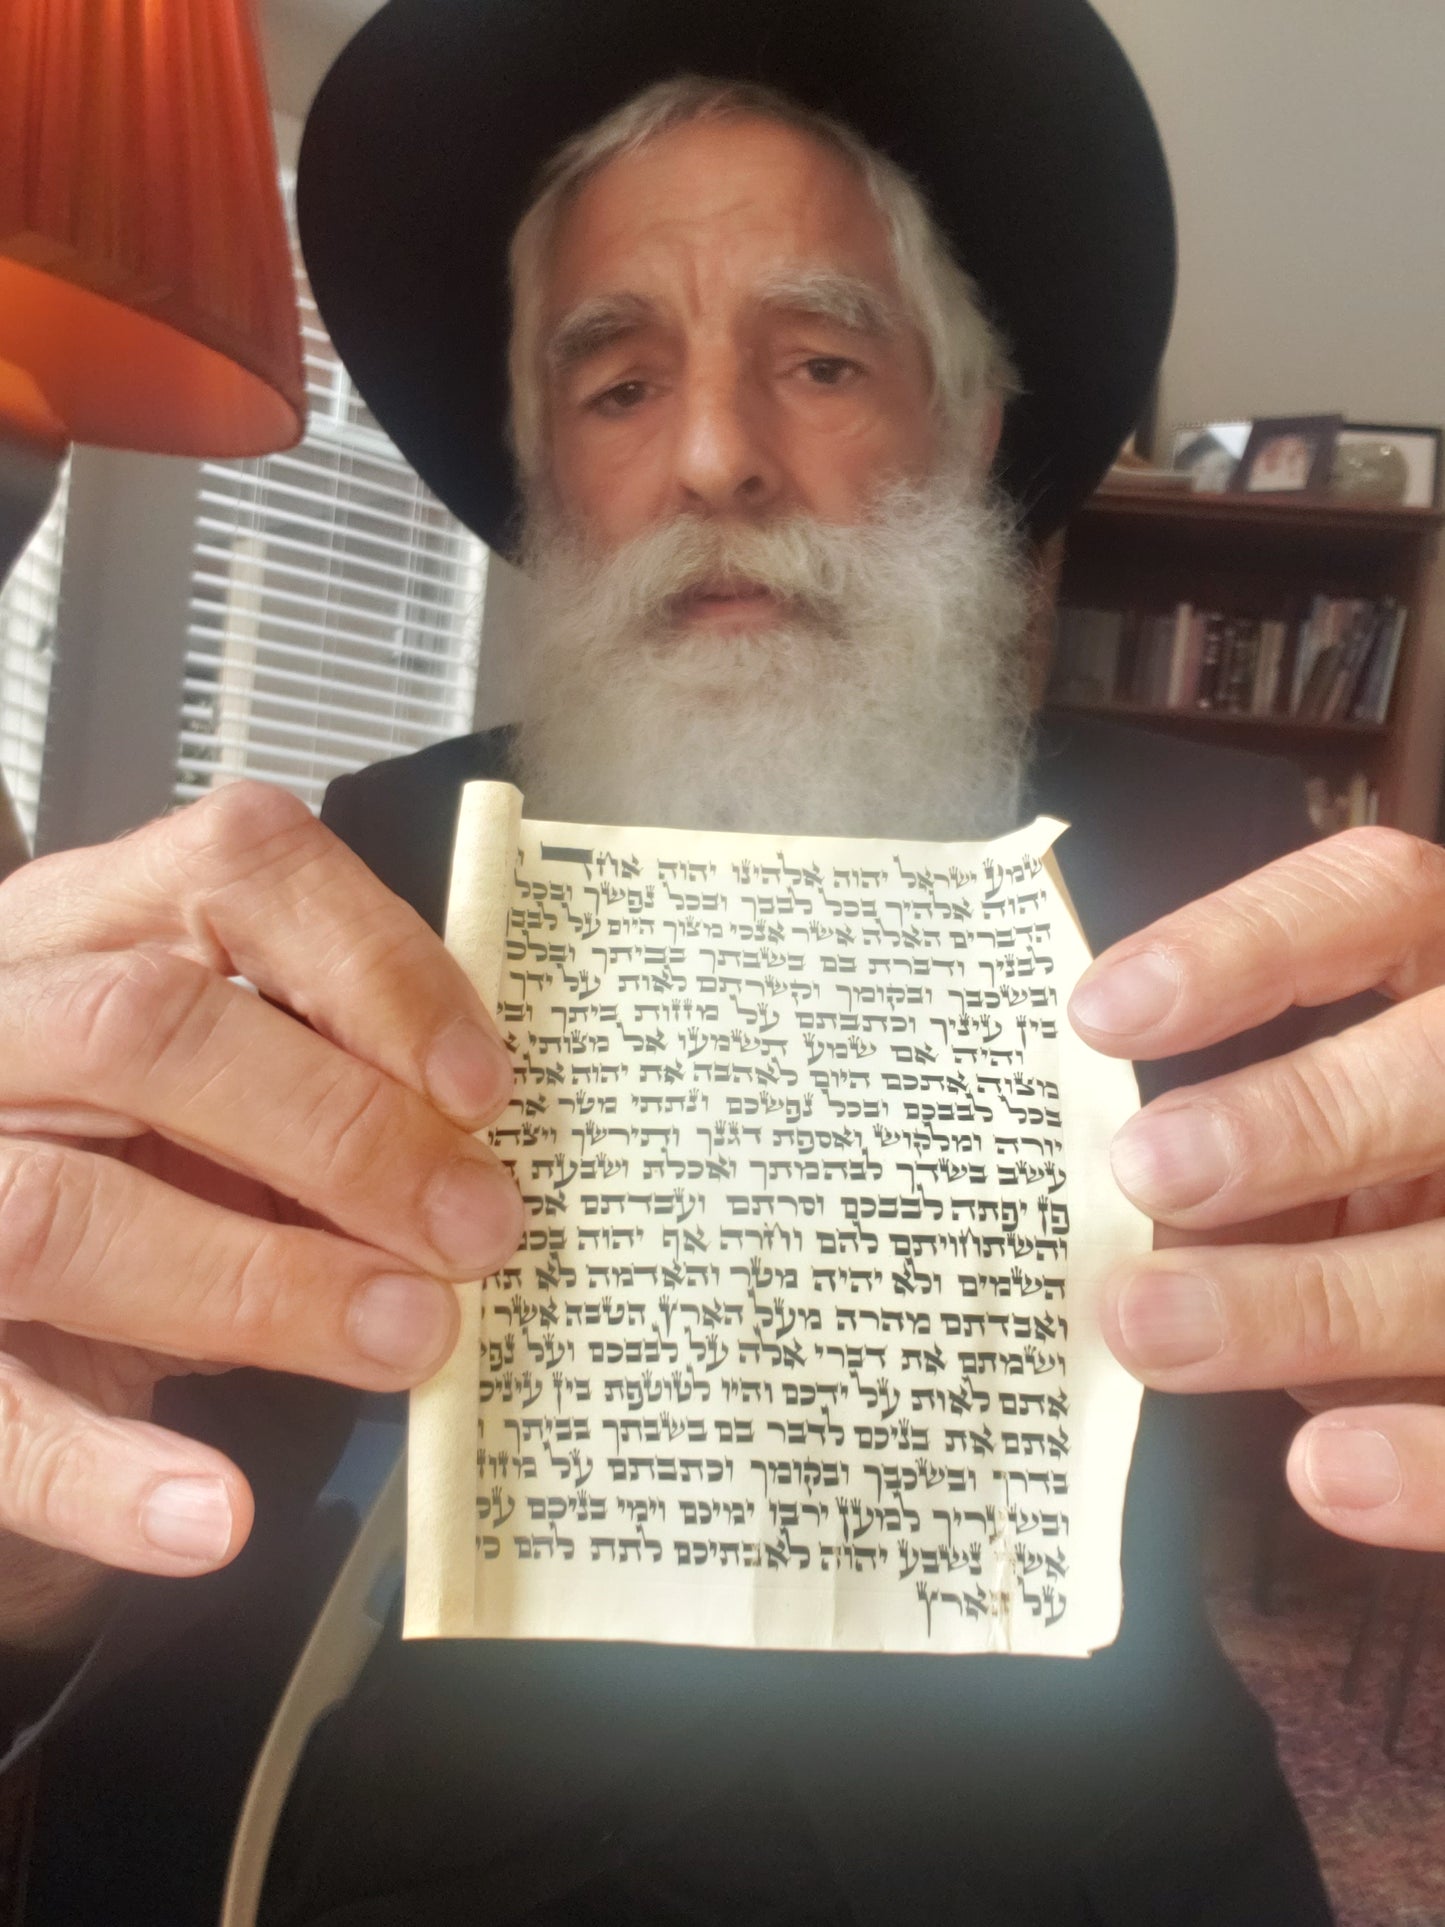 שמע ישראל יהוה אלהינו יהוה אחד
יהוה אלהיך בכל לבבך ובכל נפשך ובכל
הדברים האלה אשר אנכי מצוך היום על
לבניך ודברת בם בשבתך בביתך
ובשכבך ובקומך וקשרתם לאות על ידך
בין עיניך וכתבתם על מזזות ביתך
והיה אם שמע תשמעו אל מצותי
מצוה אתכם היום לאהבה את יהוה
בכל לבבכם ובכל נפשכם ונתתי מטר
יורה ומלקוש ואספת דגנך ותירשך
עשב בשדך לבהמתך ואכלת ושבעת
פן יפתה לבבכם וסרתם ועבדתם
והשתחויתם להם וחרה אף יהוה
השמים ולא יהיה מטר והאדמה לא
ואבדתם מהרה מעל הארץ הטבה אשר
ושמתם את דברי אלה על לבבכם ועל
אתם לאות על ידכם והיו לטוטפת בין
אתם את בניכם לדבר בם בשבתך בביתך
בדרך ובשכבך ובקומך וכתבתם על
ובשעריך למען ירבו ימיכם וימי בניכם
אשר נשבע יהוה לאבתיכם לתת להם
על הארץ